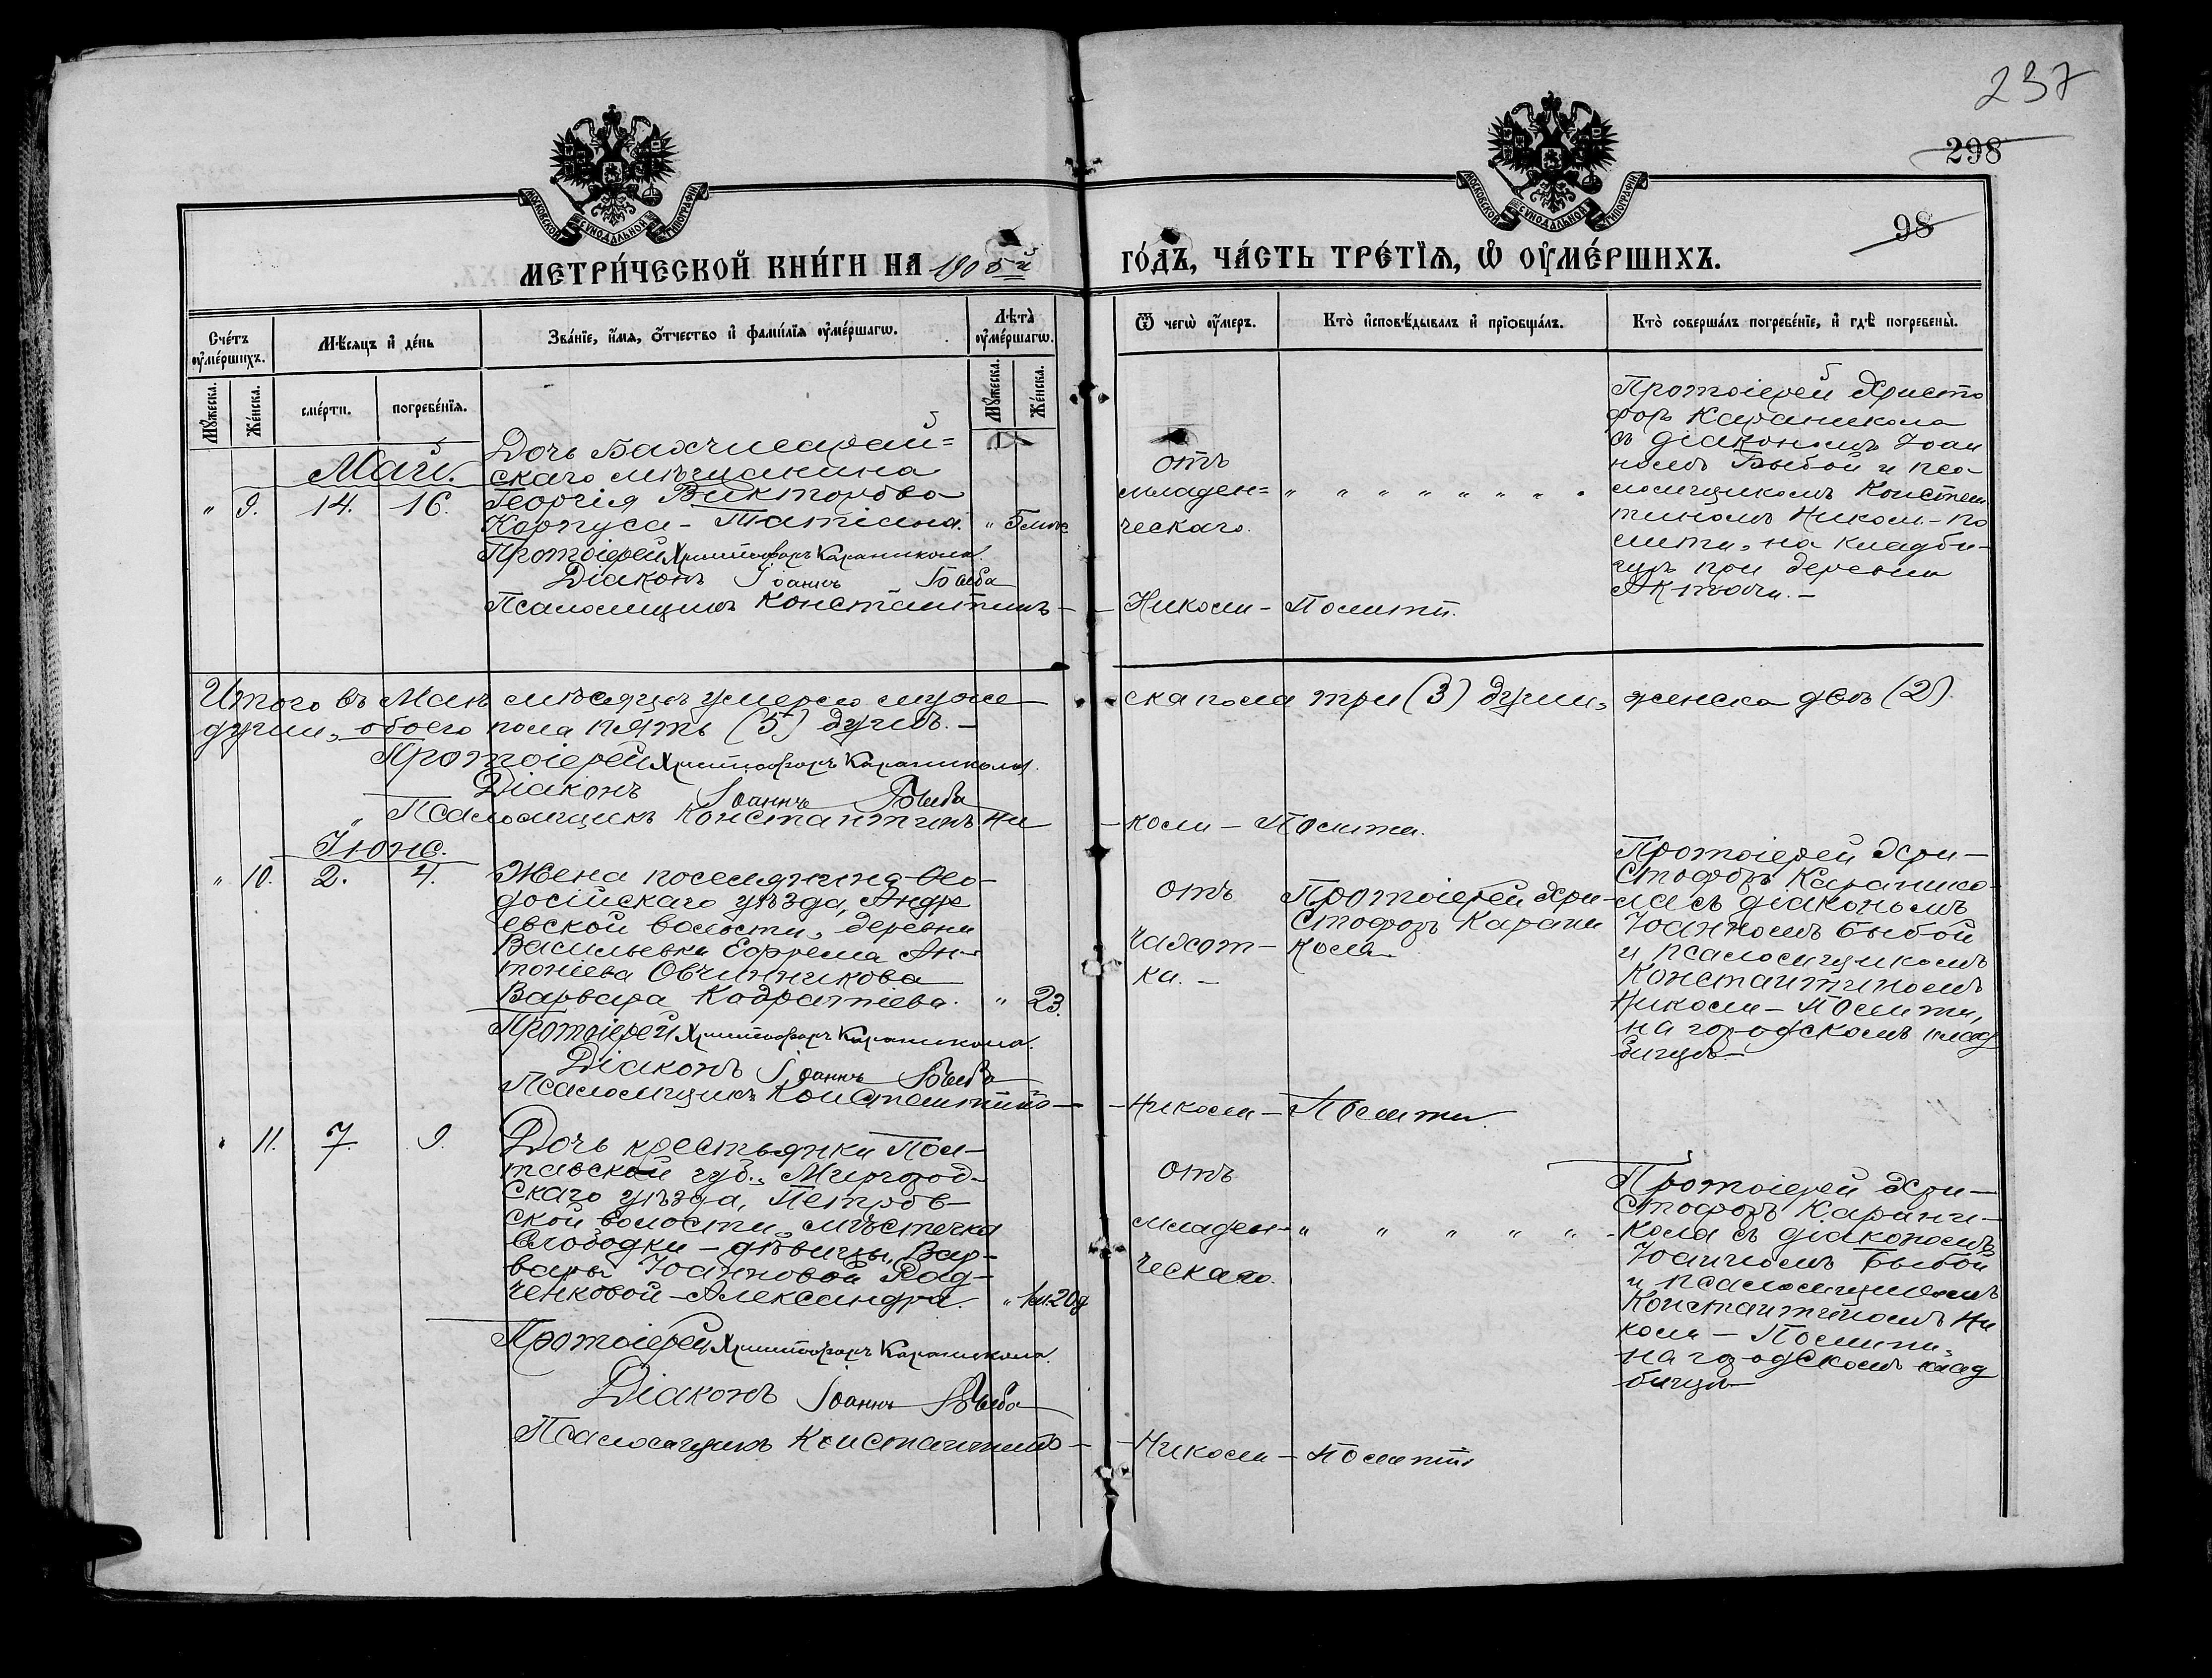 237
298
98
МОСКОВСКОЙ СѴНОДАЛЬНОЙ ТИПОГРАФІИ
МОСКОВСКОЙ СѴНОДАЛЬНОЙ ТИПОГРАФІИ
МЕТРИ́ЧЕСКОЙ КНИ́ГИ НА 190
ГО́ДЪ, ЧА́СТЬ ТРЕ́ТІѦ, Ѡ҆ ОУ҆МЕ́РШИХЪ.
Сче́тъ оу҆ме́ршихъ.
Мꙋ́жеска.
Же́нска.
Мѣ́сяцъ и҆ де́нь
сме́рти.
погребе́нїя.
Зва́нїе, и҆́мя, ѻ҆́тчество и҆ фами́лїя оу҆ме́ршагѡ.
Лѣ́та оу҆ме́ршагѡ.
Мꙋ́жеска.
Же́нска.
Ѿ чегѡ̀ оу҆́меръ.
Кто̀ и҆сповѣ́дывалъ и҆ прїѡбща́лъ.
Кто̀ соверша́лъ погребе́нїе, и҆ гдѣ̀ погребены̀.
Май.
" 9. 14. 16.
Дочь Бахчисарай=
скаго мѣщанина
Георгія Викторова
Корпуса - Татіана. " 5 мѣс
Протоіерей Христофоръ Караникола.
Діаконъ Іоаннъ Быба
Псаломщикъ Константинъ -
отъ
младен=
ческаго.
" " " " " " " "
Протоіерей Христо
форъ Караникола
съ діакономъ Іоан
номъ Быбой и пса-
ломщикомъ Констан
тиномъ Николи-По
лити, на кладби-
щѣ при деревни
Актачи. -
- Николи - Полити.
Итого въ Маѣ мѣсяцѣ умерло муже
ска пола три (3) души, женска двѣ (2)
души, обоего пола пять (5) душъ. -
Протоіерей Христофоръ Караникола.
Діаконъ Іоаннъ Быба
" Псаломщикъ Константинъ Ни
- коли - Полити.
Іюнь.
" 10. 2. 4.
Жена поселянина Ѳео-
досійскаго уѣзда, Андре
евской волости, деревни
Васильевки Ефрема Ан-
тоніева Овчинникова
Варвара Кодратіева. " 23.
Протоіерей Христофоръ Караникола.
Діаконъ Іоаннъ Быба
Псаломщикъ Константинъ -
отъ
чахот-
ки. -
Протоіерей Хри-
стофоръ Карани
кола
Протоіерей Хри-
стофоръ Каранико-
ла съ діакономъ
Іоанномъ Быбой
и псаломщикомъ
Константиномъ
Николи - Полити,
на городскомъ клад
бищѣ. -
- Николи - Полити.
" 11. 7. 9.
Дочь крестьянки Пол-
тавской губ., Миргород-
скаго уѣзда, Петров-
ской волости, мѣстечка
Слободки - дѣвицы, Вар-
вары Іоанновой Рад-
ченковой - Александра. " 1м. 20д
Протоіерей Христофоръ Караникола.
Діаконъ Іоаннъ Быба
Псаломщикъ Константинъ -
отъ
младен-
ческаго.
" " " " "
Протоіерей Хри-
стофоръ Карани-
кола съ діакономъ
Іоанномъ Быбой
и псаломщикомъ
Константиномъ Ни
коли - Полити,
на городскомъ клад
бищѣ -
- Николи - Полити